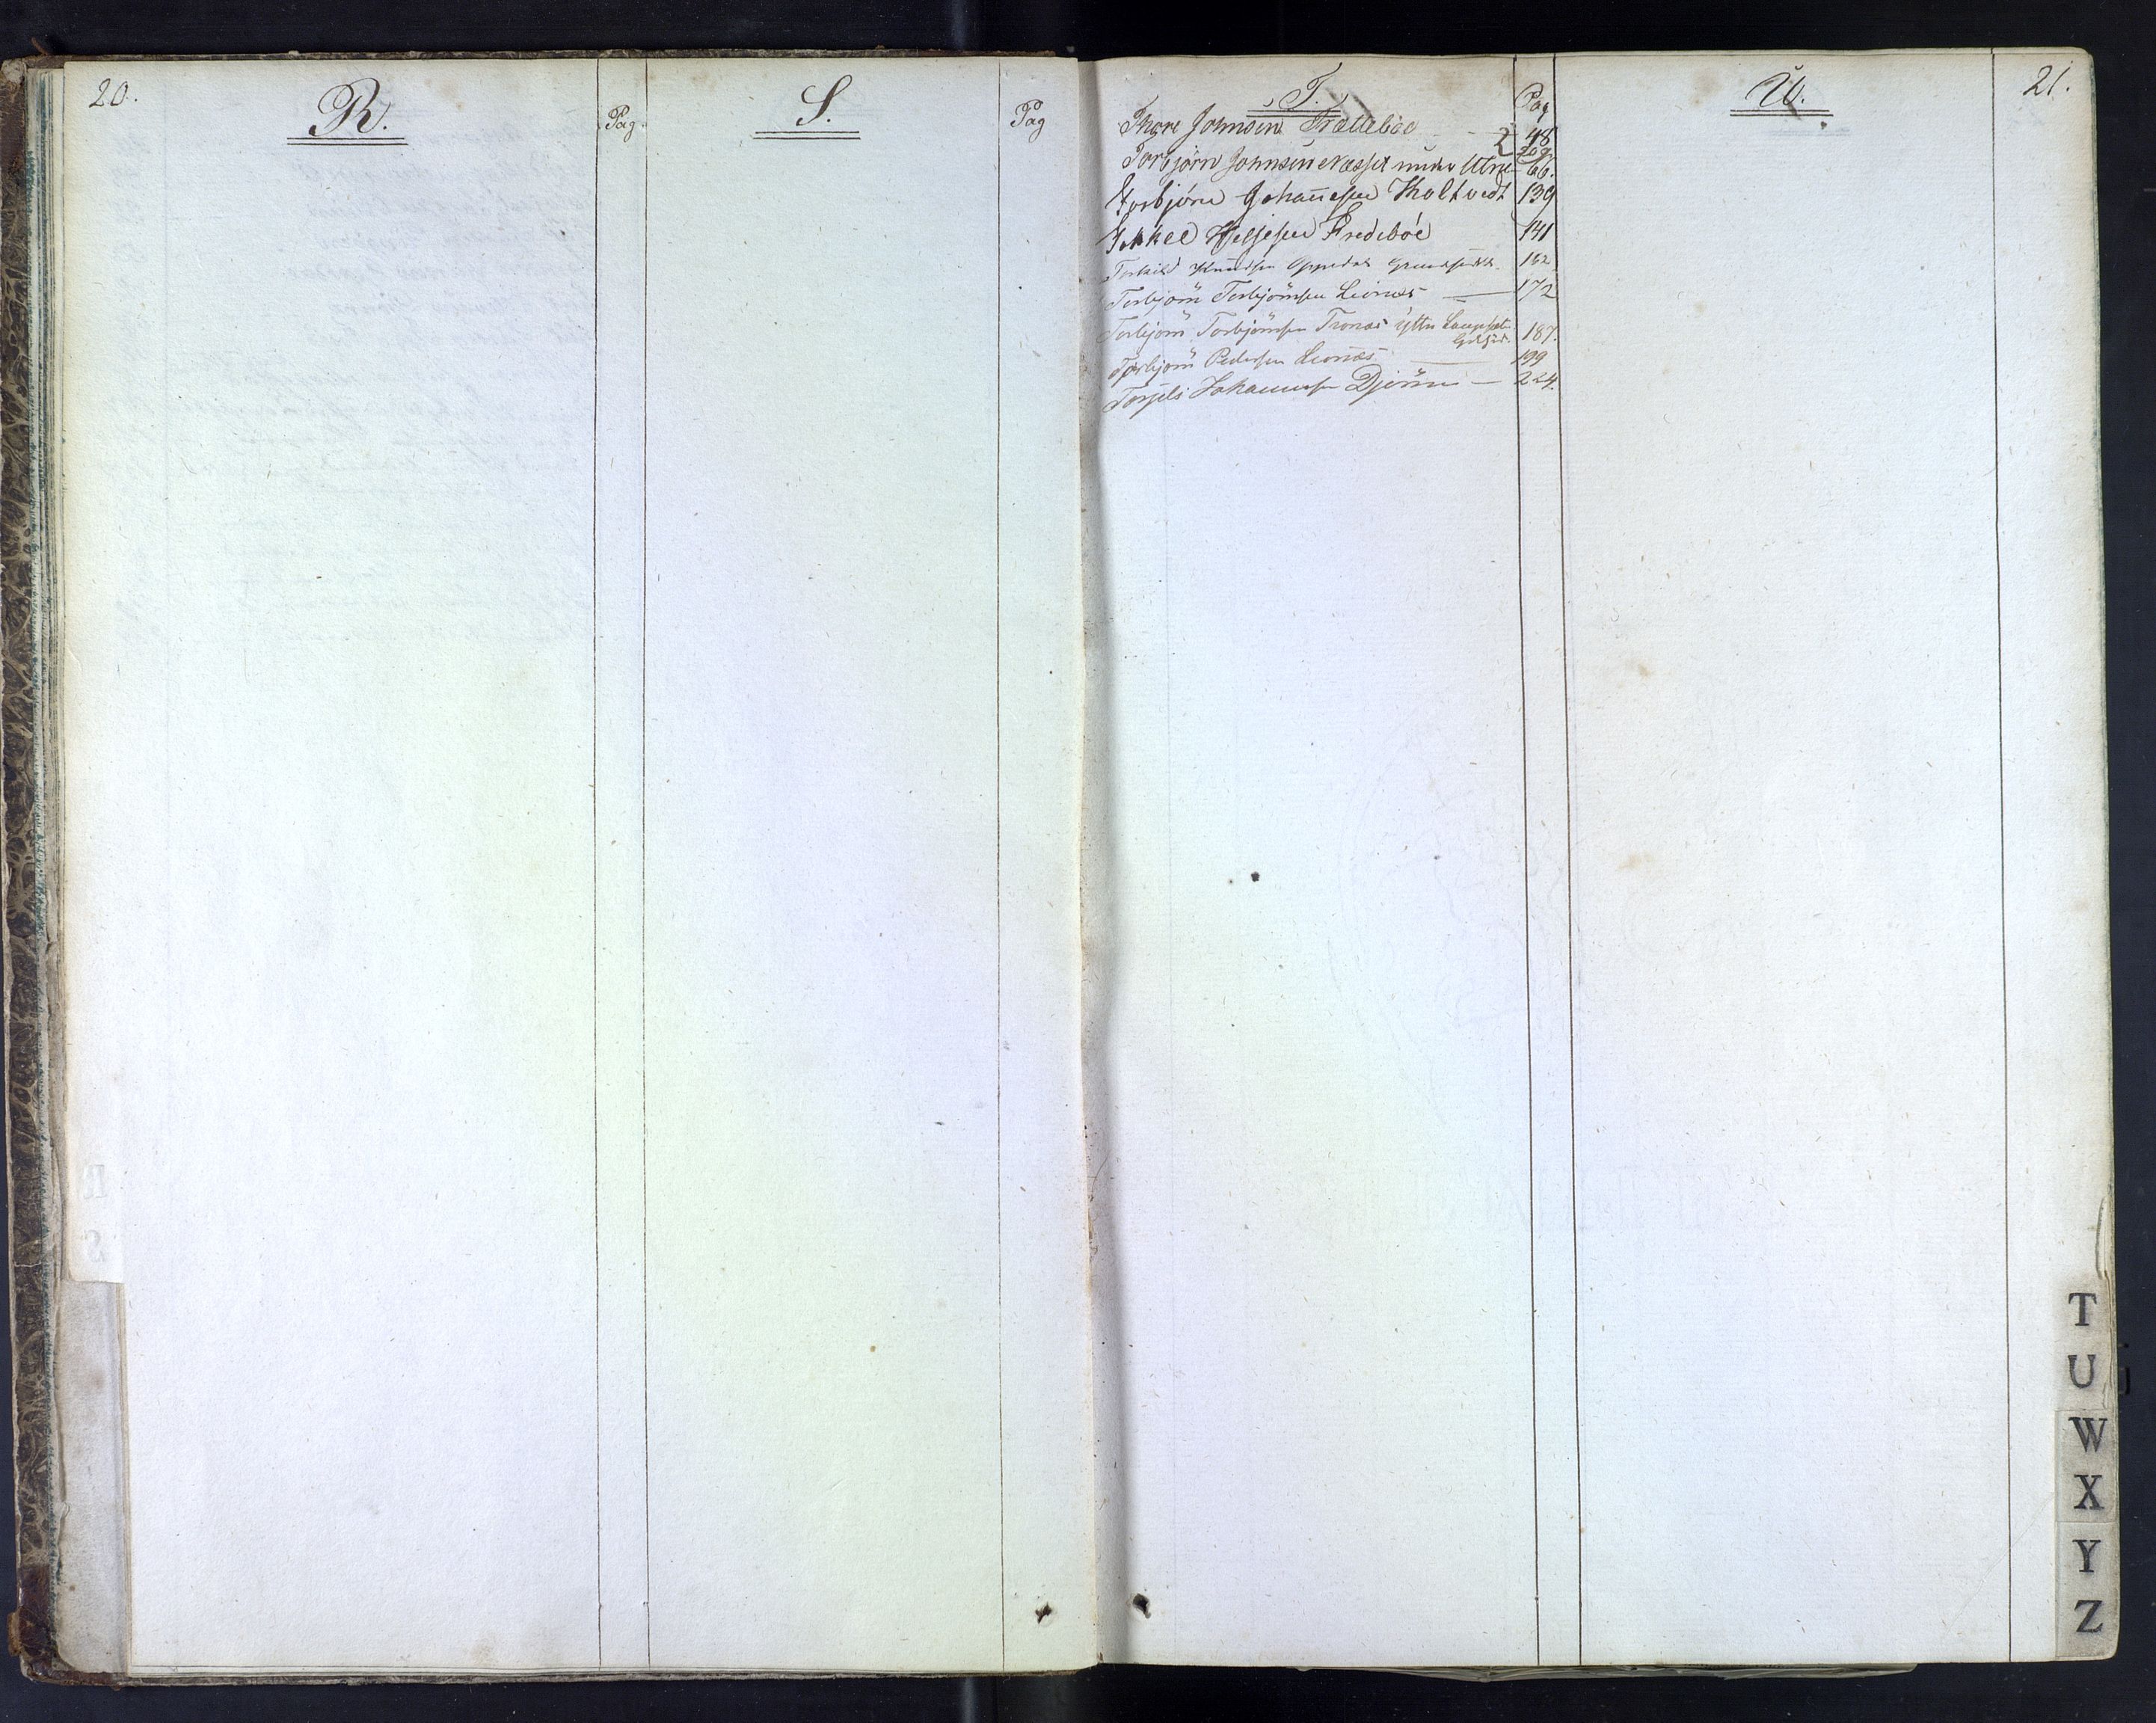 20.
R.
Pag.
S.
Pag
T.
Pag
Thore Johnsen Trællebøe 2 48
209
Torbjörn Johnsen Næsset under Utne 66.
Torbjörn Johannesen Tholtvedt 139
Helgesen Tredebøe 141
Torkild Knudsen 162
Torbjörn Torbjörnsen Leionæs 172
Torbjörn Torbjörnsen Tronæs Yttre 187.
Torbjörn Pedersen Leonæs 199
Torgils Johannesen Djönne 224.
U.
21.
T
U
W
X
Y
Z